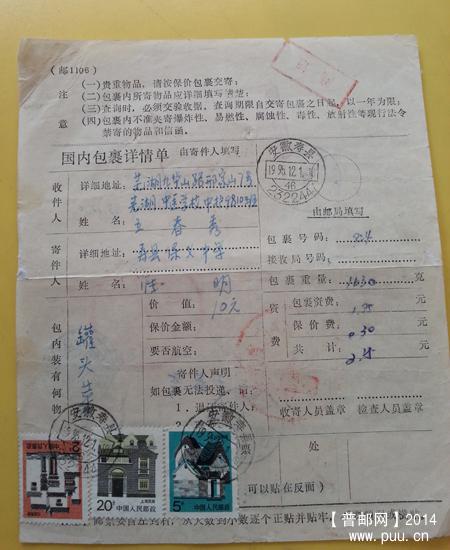 (邮1106)
注意
(一)贵重物品，请按保价包裹交寄；
(二)包裹内所寄物品应详细填写清楚；
(三)查询时，必须交验收据，查询期限自交寄包裹之日起，以一年为限；
(四)包裹内不准夹寄爆炸性、易燃性、腐蚀性、毒性、放射性等现行法令
禁寄的物品和信函。
国内包裹详情单 由寄件人填写
安徽寿县
232244
收件人
详细地址：
芜湖中医学校
姓名：
王春秀
寄件人
详细地址：寿县保义中学
姓名： 明
包内装有何物
罐头
价值：
10元
保价金额：
要否航空：
寄件人声明
如包裹无法投递，请：
由邮局填写
包裹号码：
接收局号码：
包裹重量： 克
资费
包裹资费： 元
保价费：0.30 元
共计： 元
收寄人员盖章 检查人员盖章
处
可以贴在反面)
安徽寿县
中国人民邮政
20分
上海民居
中国人民邮政
5分
中国人民邮政
从大数到小数逐个正贴并贴牢
【普邮网】2014
@ www.puu.cn